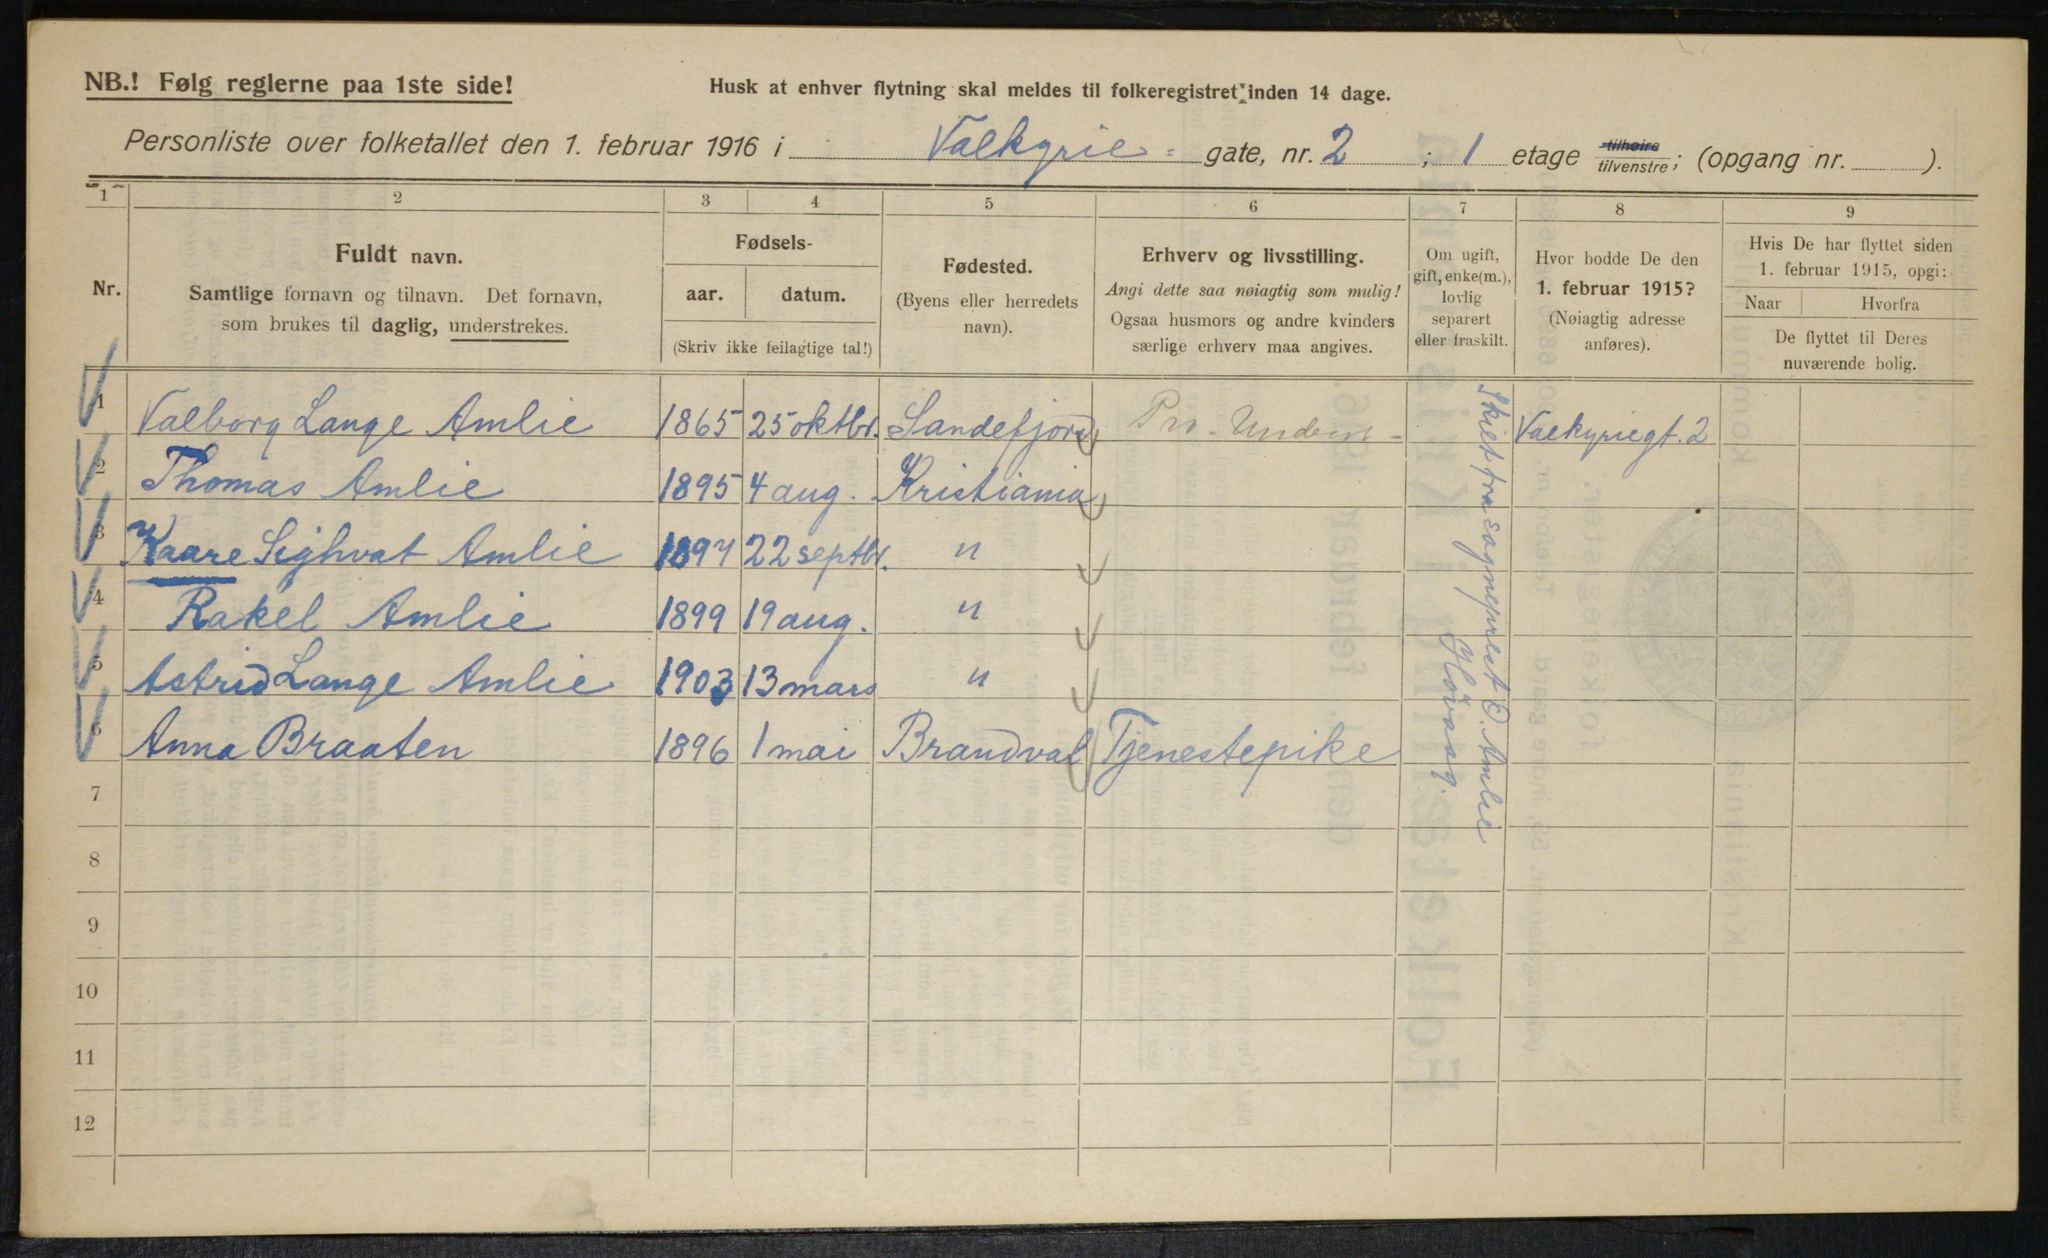 NB.! Følg reglerne paa 1ste side!
Husk at enhver flytning skal meldes til folkeregistret inden 14 dage.
Personliste over folketallet den 1. februar 1916 i Valkyrie- gate, nr. 2 ; 1 etage tilhøire tilvenstre; (opgang nr. ).
1 2 3 4 5 6 7 8 9
Nr.
Fuldt navn.
Samtlige fornavn og tilnavn. Det fornavn,
som brukes til daglig, understrekes.
Fødsels-
aar. datum.
(Skriv ikke feilagtige tal!)
Fødested.
(Byens eller herredets
navn).
Erhverv og livsstilling.
Angi dette saa nøiagtig som mulig!
Ogsaa husmors og andre kvinders
særlige erhverv maa angives.
Om ugift,
gift, enke(m.),
lovlig
separert
eller fraskilt.
Hvor bodde De den
1. februar 1915?
(Nøiagtig adresse
anføres).
Hvis De har flyttet siden
1. februar 1915, opgi:
Naar Hvorfra
De flyttet til Deres
nuværende bolig.
1 Valborg Lange Amlie 1865 25 oktbr. Sandefjord Valkyriegt. 2
2 Thomas Amlie 1895 4 aug. Kristiania
3 Kaare Sighvat Amlie 1897 22 septbr. "
4 Rakel Amlie 1899 19 aug. "
5 Astrid Lange Amlie 1903 13 mars "
6 Anna Braaten 1896 1 mai Brandval Tjenestepike
Skilt fra sogneprest O. Amlie
Høvaag.
7
8
9
10
11
12